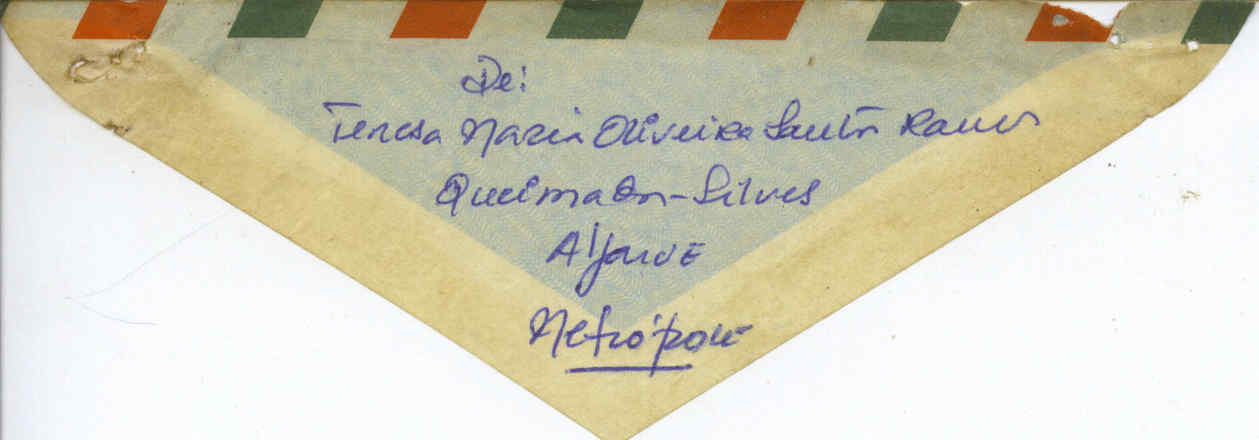 De:
Teresa Maria Oliveira Santos Ramos
Queimados-Silves
Algarve
Metrópole